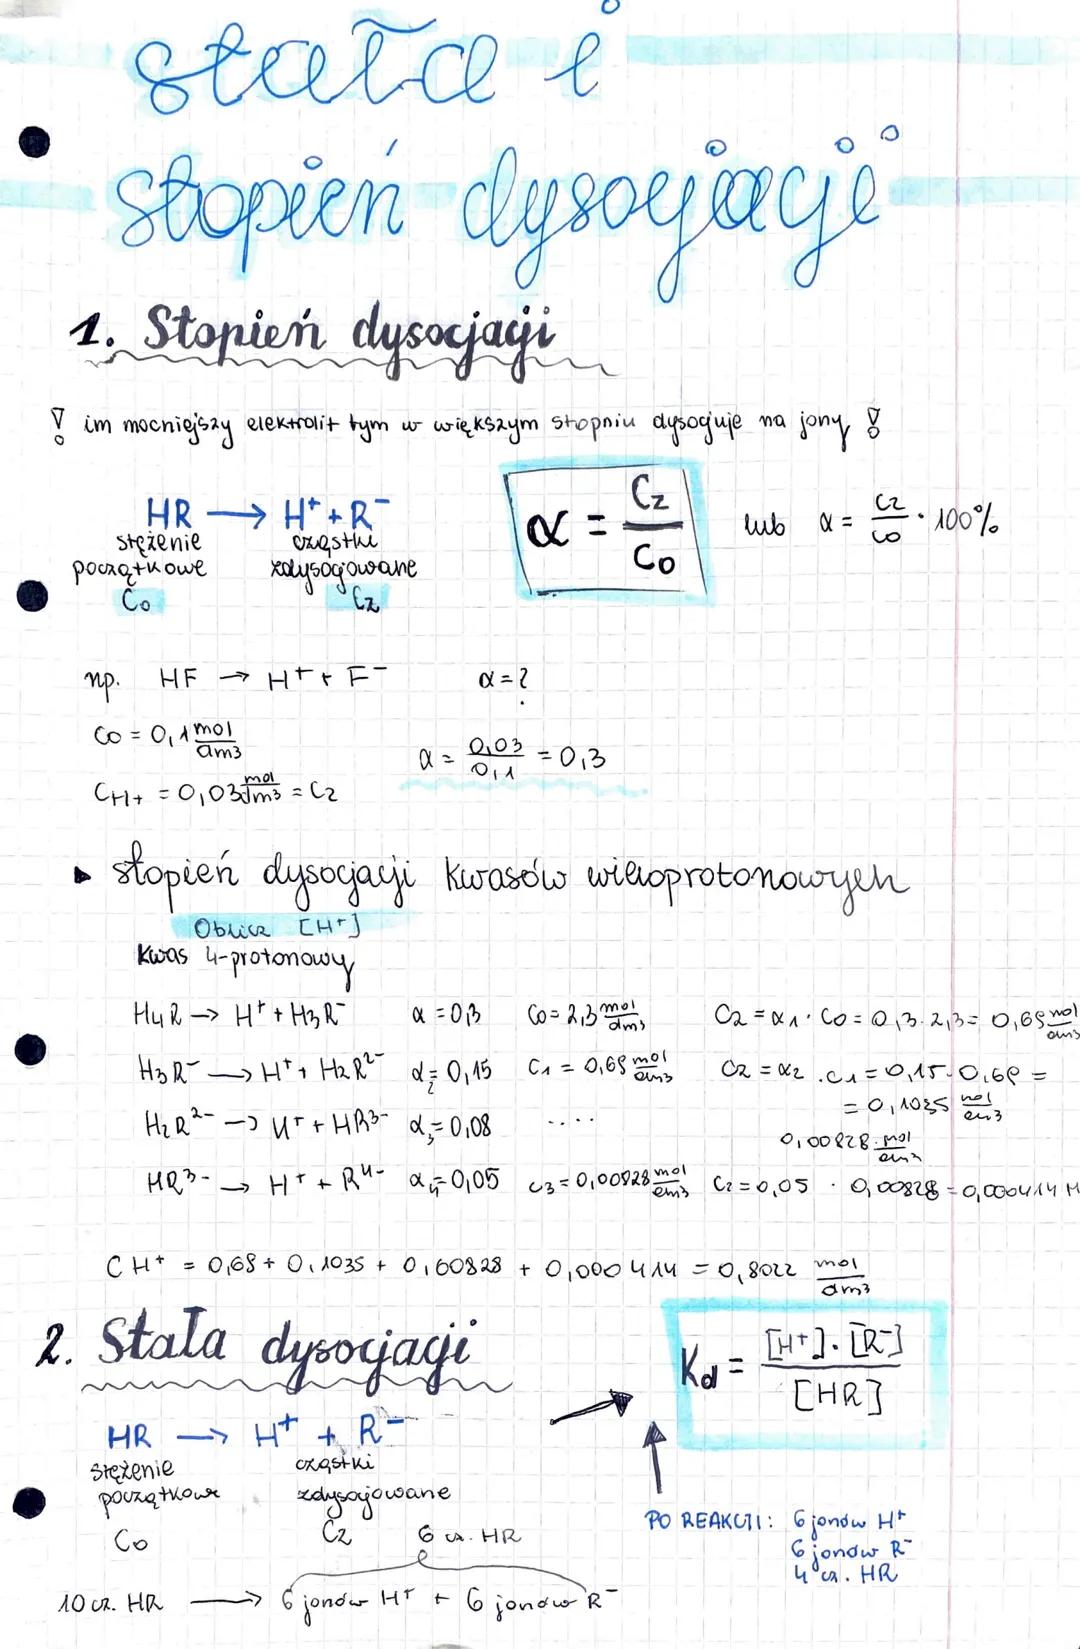 stała i
stopień dysocjacji
1. Stopień dysocjacji
! im mocniejszy elektrolit tym w większym stopniu dysocjuje na jony !
HR → H⁺ + R⁻
stężenie początkowe C₀
cząstki zdysocjowane Cz
α = Cz / C₀ lub α = Cz / C₀ · 100%
np. HF → H⁺ + F⁻ α = ?
C₀ = 0,1 mol/dm³
CH⁺ = 0,03 mol/dm³ = Cz
α = 0,03 / 0,1 = 0,3
▸ stopień dysocjacji kwasów wieloprotonowych
Oblicz [H⁺]
kwas 4-protonowy
H₄R → H⁺ + H₃R⁻ α = 0,3 C₀ = 2,3 mol/dm³ Cz = α₁ · C₀ = 0,3 · 2,3 = 0,69 mol/dm³
H₃R⁻ → H⁺ + H₂R²⁻ α₂ = 0,15 C₁ = 0,69 mol/dm³ Cz = α₂ · C₁ = 0,15 · 0,69 =
= 0,1035 mol/dm³
H₂R²⁻ → H⁺ + HR³⁻ α₃ = 0,08 ....
0,00828 mol/dm³
HR³⁻ → H⁺ + R⁴⁻ α₄ = 0,05 C₃ = 0,00828 mol/dm³ Cz = 0,05 · 0,00828 = 0,000414 M
CH⁺ = 0,69 + 0,1035 + 0,00828 + 0,000414 = 0,8022 mol/dm³
2. Stała dysocjacji
Kd = [H⁺] · [R⁻] / [HR]
HR → H⁺ + R⁻
stężenie początkowe C₀
cząstki zdysocjowane Cz
PO REAKCJI: 6 jonów H⁺
6 jonów R⁻
4 cz. HR
6 cz. HR
10 cz. HR → 6 jonów H⁺ + 6 jonów R⁻